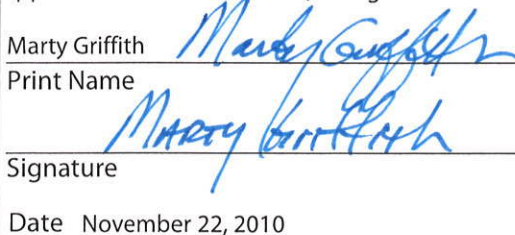 Marty Griffith Marty Griffith
Print Name
MARTY Griffith
Signature
Date November 22, 2010